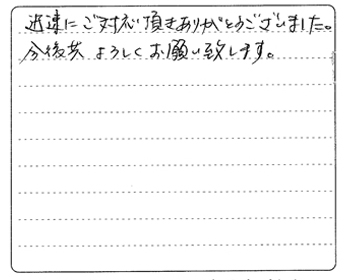 迅速にご対応頂きありがとうございました。
今後共よろしくお願い致します。